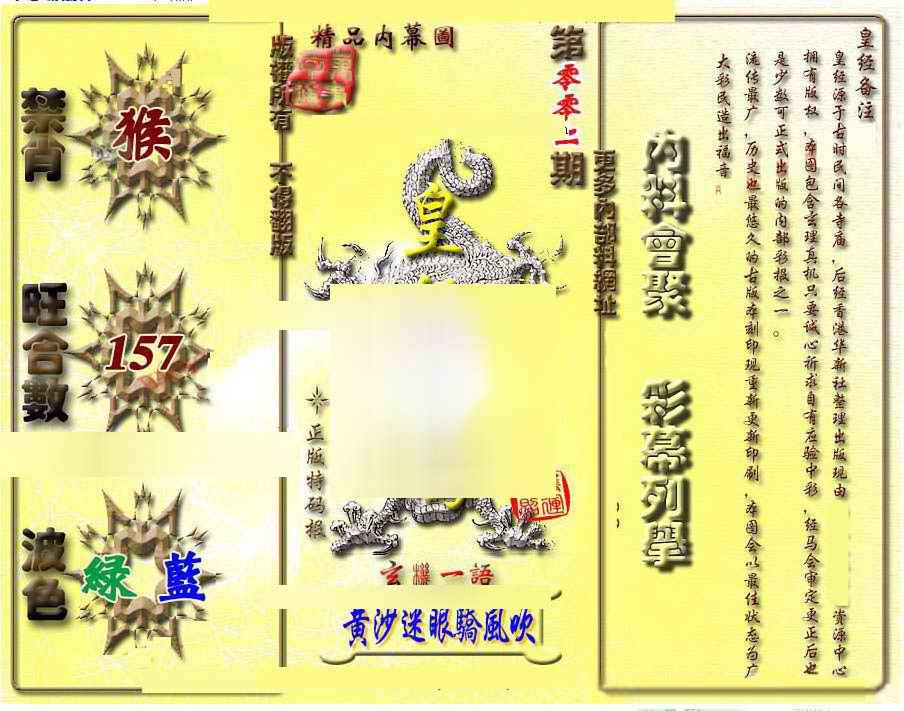 禁肖
猴
旺合數
157
波色
綠 藍
版權所有 不得翻版
精品内幕圖
第零零二期
皇
正版特码报
玄機一語
黃沙迷眼驕風吹
更多內部料網址
内料會聚 彩幕列舉
皇经备注
皇经源于古时民间各寺庙，后经香港华新社整理出版现由
资源中心
拥有版权，本图包含玄理真机只要诚心祈求自有应验中彩，经马会审定更正后也
是少数可正式出版的内部彩报之一。
流传最广，历史也最悠久的古版本刻印现重新更新印刷，本图会以最佳状态为广
大彩民造出福音